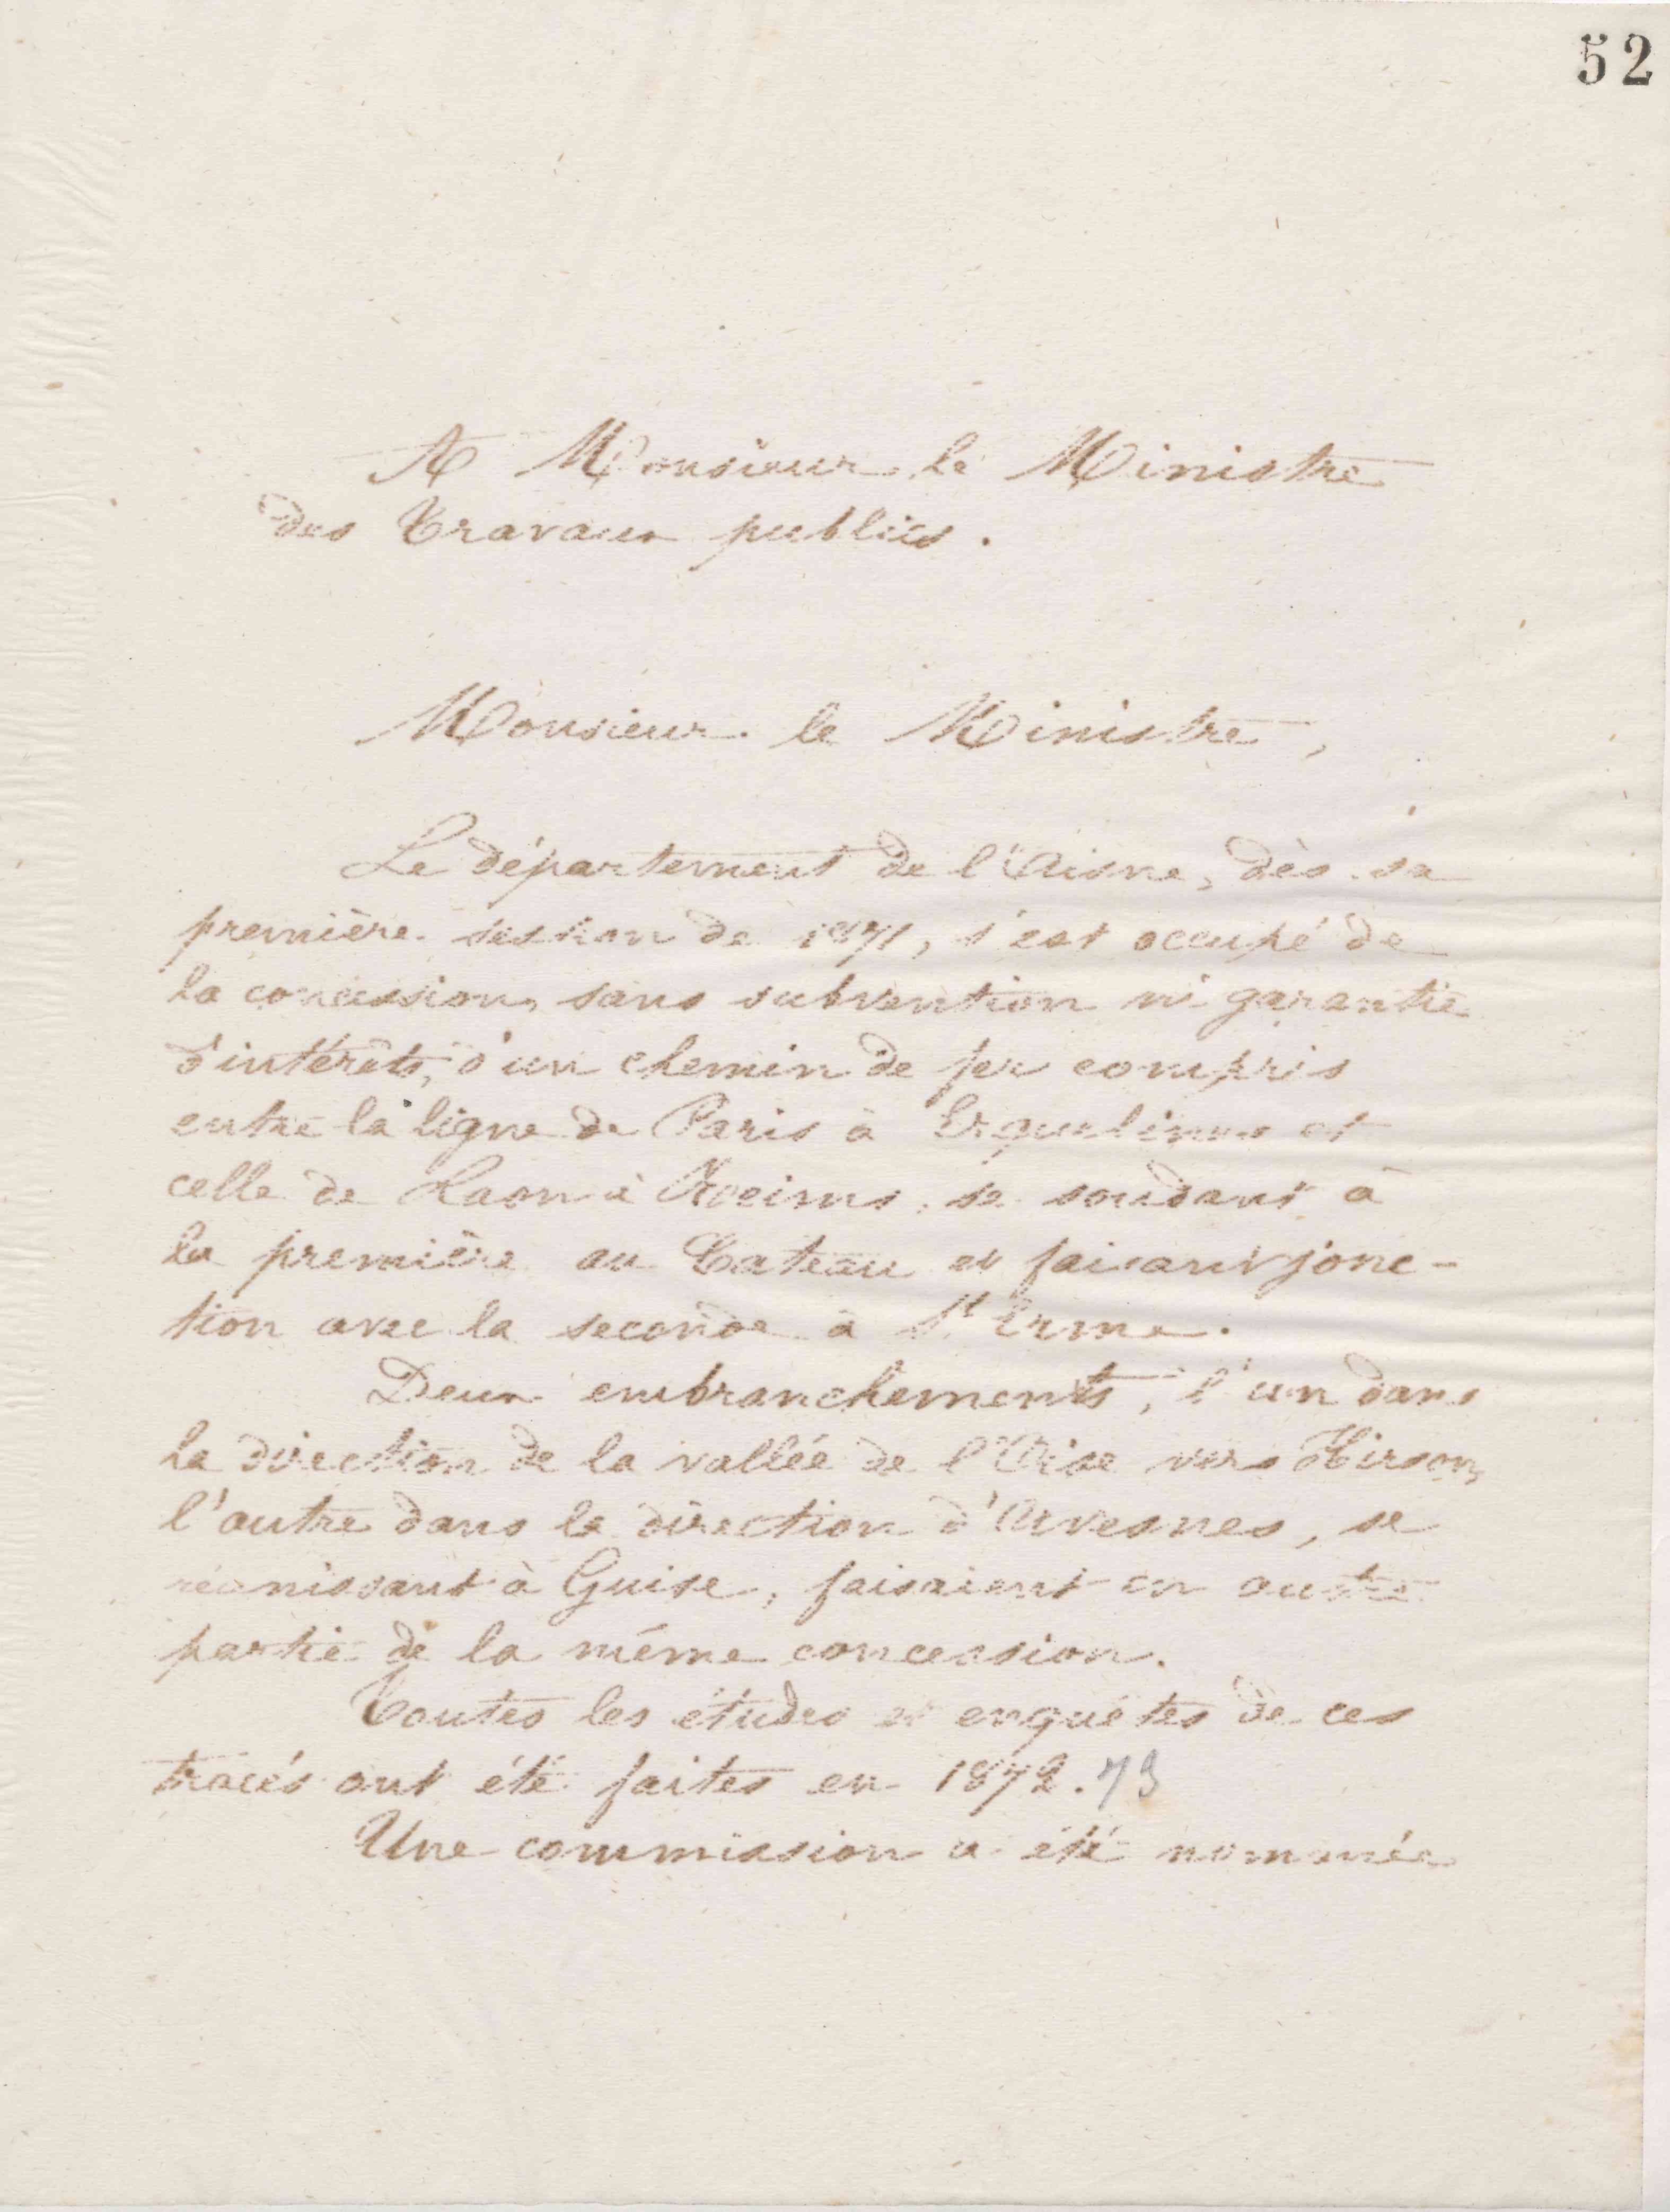 52
A Monsieur le Ministre
des Travaux publics.
Monsieur le Ministre,
Le département de l'Aisne, dès sa
première session de 1871, s'est occupé de
la concession, sans subvention ni garantie
d'intérêts, d'un chemin de fer compris
entre la ligne de Paris à Erquelinnes et
celle de Laon à Reims, se soudant à
la première au Cateau et faisant jonc-
tion avec la seconde à St Erme.
Deux embranchements, l'un dans
la direction de la vallée de l'Oise vers Hirson,
l'autre dans la direction d'Avesnes, se
réunissant à Guise, faisaient en outre
partie de la même concession.
Toutes les études et enquêtes de ces
tracés ont été faites en 1872.73
Une commission a été nommée